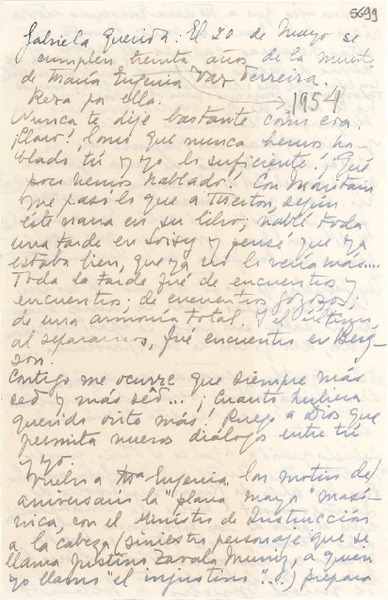 5699
Gabriela querida: El 20 de Mayo se
cumplen treinta años de la muerte
de María Eugenia Vaz Ferreira.
Reza por ella. 1954
Nunca te dije bastante como era.
¡Claro! ¡Como que nunca hemos ha-
blado tú y yo lo suficiente! ¡Qué
poco hemos hablado! Con Maritain
me pasó lo que a Merton, según
éste narra en su libro; hablé toda
una tarde en y pensé que ya
estaba bien, que ya no lo vería más...
Toda la tarde fué de encuentros y
encuentros; de encuentros gozosos;
de una armonía total. Y el último
al separarnos, fué encuentro en Berg-
son.
Contigo me ocurre que siempre más
sed y más sed...; ¡Cuánto hubiera
querido oirte más! Ruego a Dios que
permita nuevos diálogos entre tú
y yo.
Vuelvo a Mª Eugenia. Con motivo del
aniversario la "plana mayor" masó-
nica, con el Ministro de Instrucción
a la cabeza (siniestro personaje que se
llama Justino Zavala Muniz, a quien
yo llamo "el injustino"...) prepara